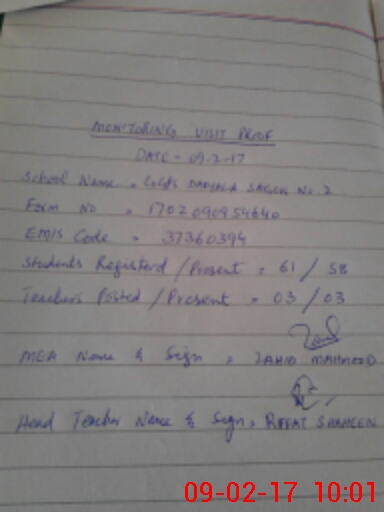 MONITORING VISIT PROOF
DATE - 09-2-17
School Name = GGPS DADYALA SAGGEN No 2
Form No = 1702090954640
EMIS Code = 37360394
Students Registerd / Present = 61 / 58
Teachers Posted / Present = 03 / 03
MEA Name & Sign = ZAHID MAHMOOD
Head Teacher Name & Sign = RIFFAT SHAHEEN
09-02-17 10:01